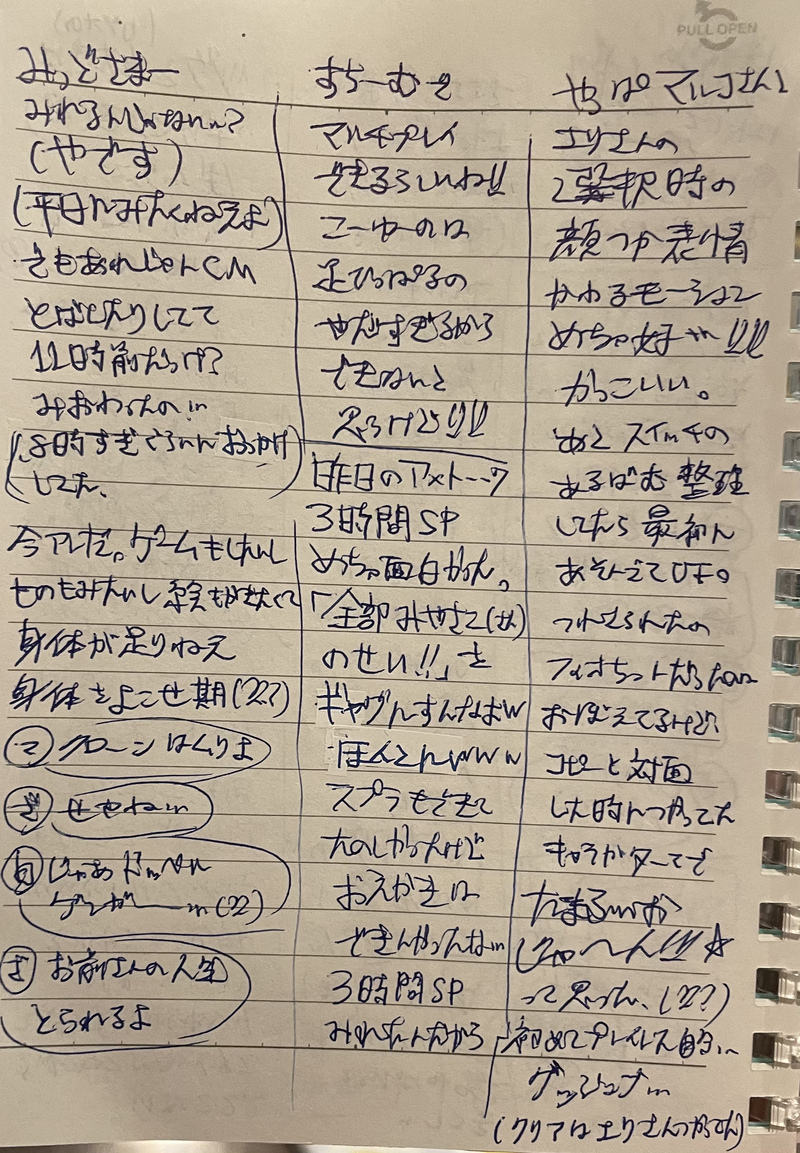 PULL OPEN
みっどさまー
みれるんじゃないい?
(やです)
(平日にみたくねえよ)
でもあれじゃんCM
とばしたりしてて
11時前だっけ?
みおわったの
(8時すぎぐらいにおっかけ
してた、
今アレだ。ゲームもしたいし
ものもみたいし絵もかきたくて
身体が足りねえ
身体をよこせ期(??)
クローンはムリよ
せやねw
じゃあドッペル
ゲンガーー(??)
お前さんの人生
とられるよ
すちーむで
マルチプレイ
できるらしいね!!
こーゆーのは
足ひっぱるの
やだすぎるから
できないと
思うけど!!!
昨日のアメトーーク
3時間SP
めっちゃ面白かった。
「全部みやざこ(せん)
のせい!!」を
ギャグにすんなよw
ほんとにwww
スプラもできて
たのしかったけど
おえかきは
できんかったなw
3時間SP
みれたんだから
やっぱマルコさんと
エリさんの
選択時の
顔つか表情
かわるモーション
めっちゃ好きw!!!
かっこいい。
あとスイッチの
あるばむ整理
してたら最初に
あそんでてUFO
つれさられたの
フィオちっトだったな
おぼえてるけど?
コピーと対面
した時につかってた
キャラがターマで
たまるwか
じゃーん!!!☆
って思った、(??)
初めてプレイした自分、
グッジョブw
(クリアはエリさんつかってた)